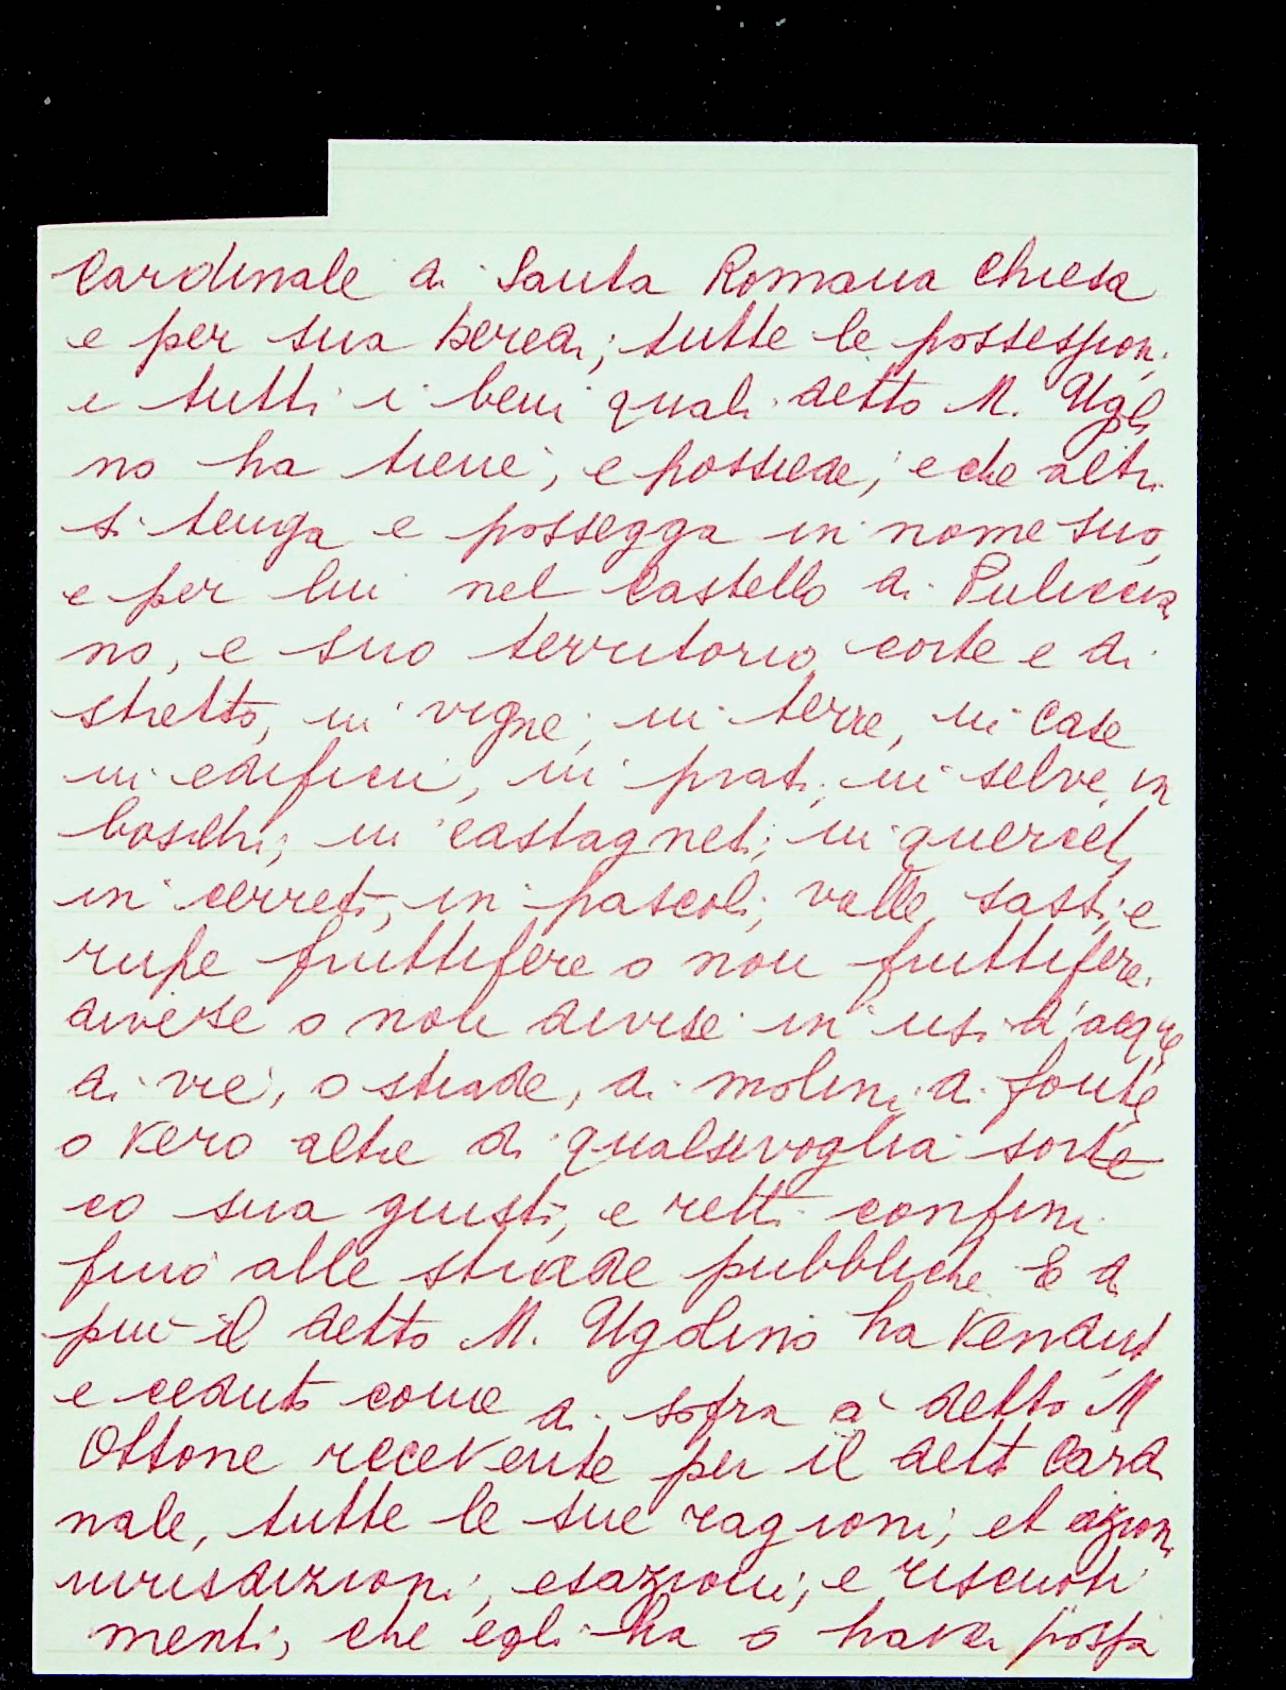 Cardinale di Santa Romana Chiesa
e per sua heredi; tutte le possessioni
e tutti i beni quali detto M. Ugli
no ha tiene, e possiede, e che altri
si tenga e possegga in nome suo,
e per lui nel Castello di Puliccia
no, e suo territorio corte e di
stretto, in vigne, in terre, in case
in edifici, in prati, in selve, in
boschi, in castagneti, in querceti,
in cerreti, in pascoli, valle, sassi, e
rupe fruttifere o non fruttifere.
divise o non divise in usi d'acque
di vie, o strade, di molini, di fonte
o vero altre di qualsivoglia sorte
co sua giusti, e retti confini
fino alle strade pubbliche E di
più il detto M. Ugolino ha vendut
e ceduto come di sopra a detto M
Ottone recevente per il dett Cardi
nale, tutte le sue ragioni, et azioni
iurisdizioni, esazioni, e riscuoti
menti, che egli ha o haver possa